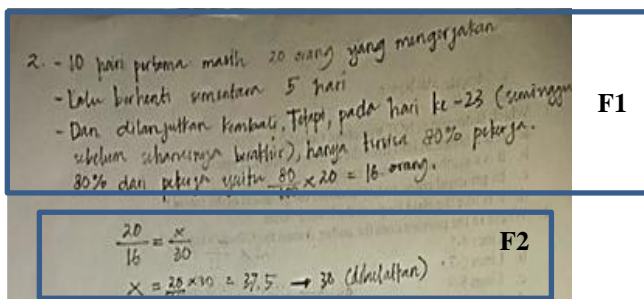 2. - 10 hari pertama masih 20 orang yang mengerjakan
- Lalu berhenti sementara 5 hari
- Dan dilanjutkan kembali. Tetapi, pada hari ke-23 (seminggu
sebelum seharusnya berakhir), hanya tersisa 80% pekerja.
80% dari pekerja yaitu 80/100 x 20 = 16 orang.
F1
20/16 = x/30
F2
x = 20 x 30 = 37,5 → 38 (dibulatkan)